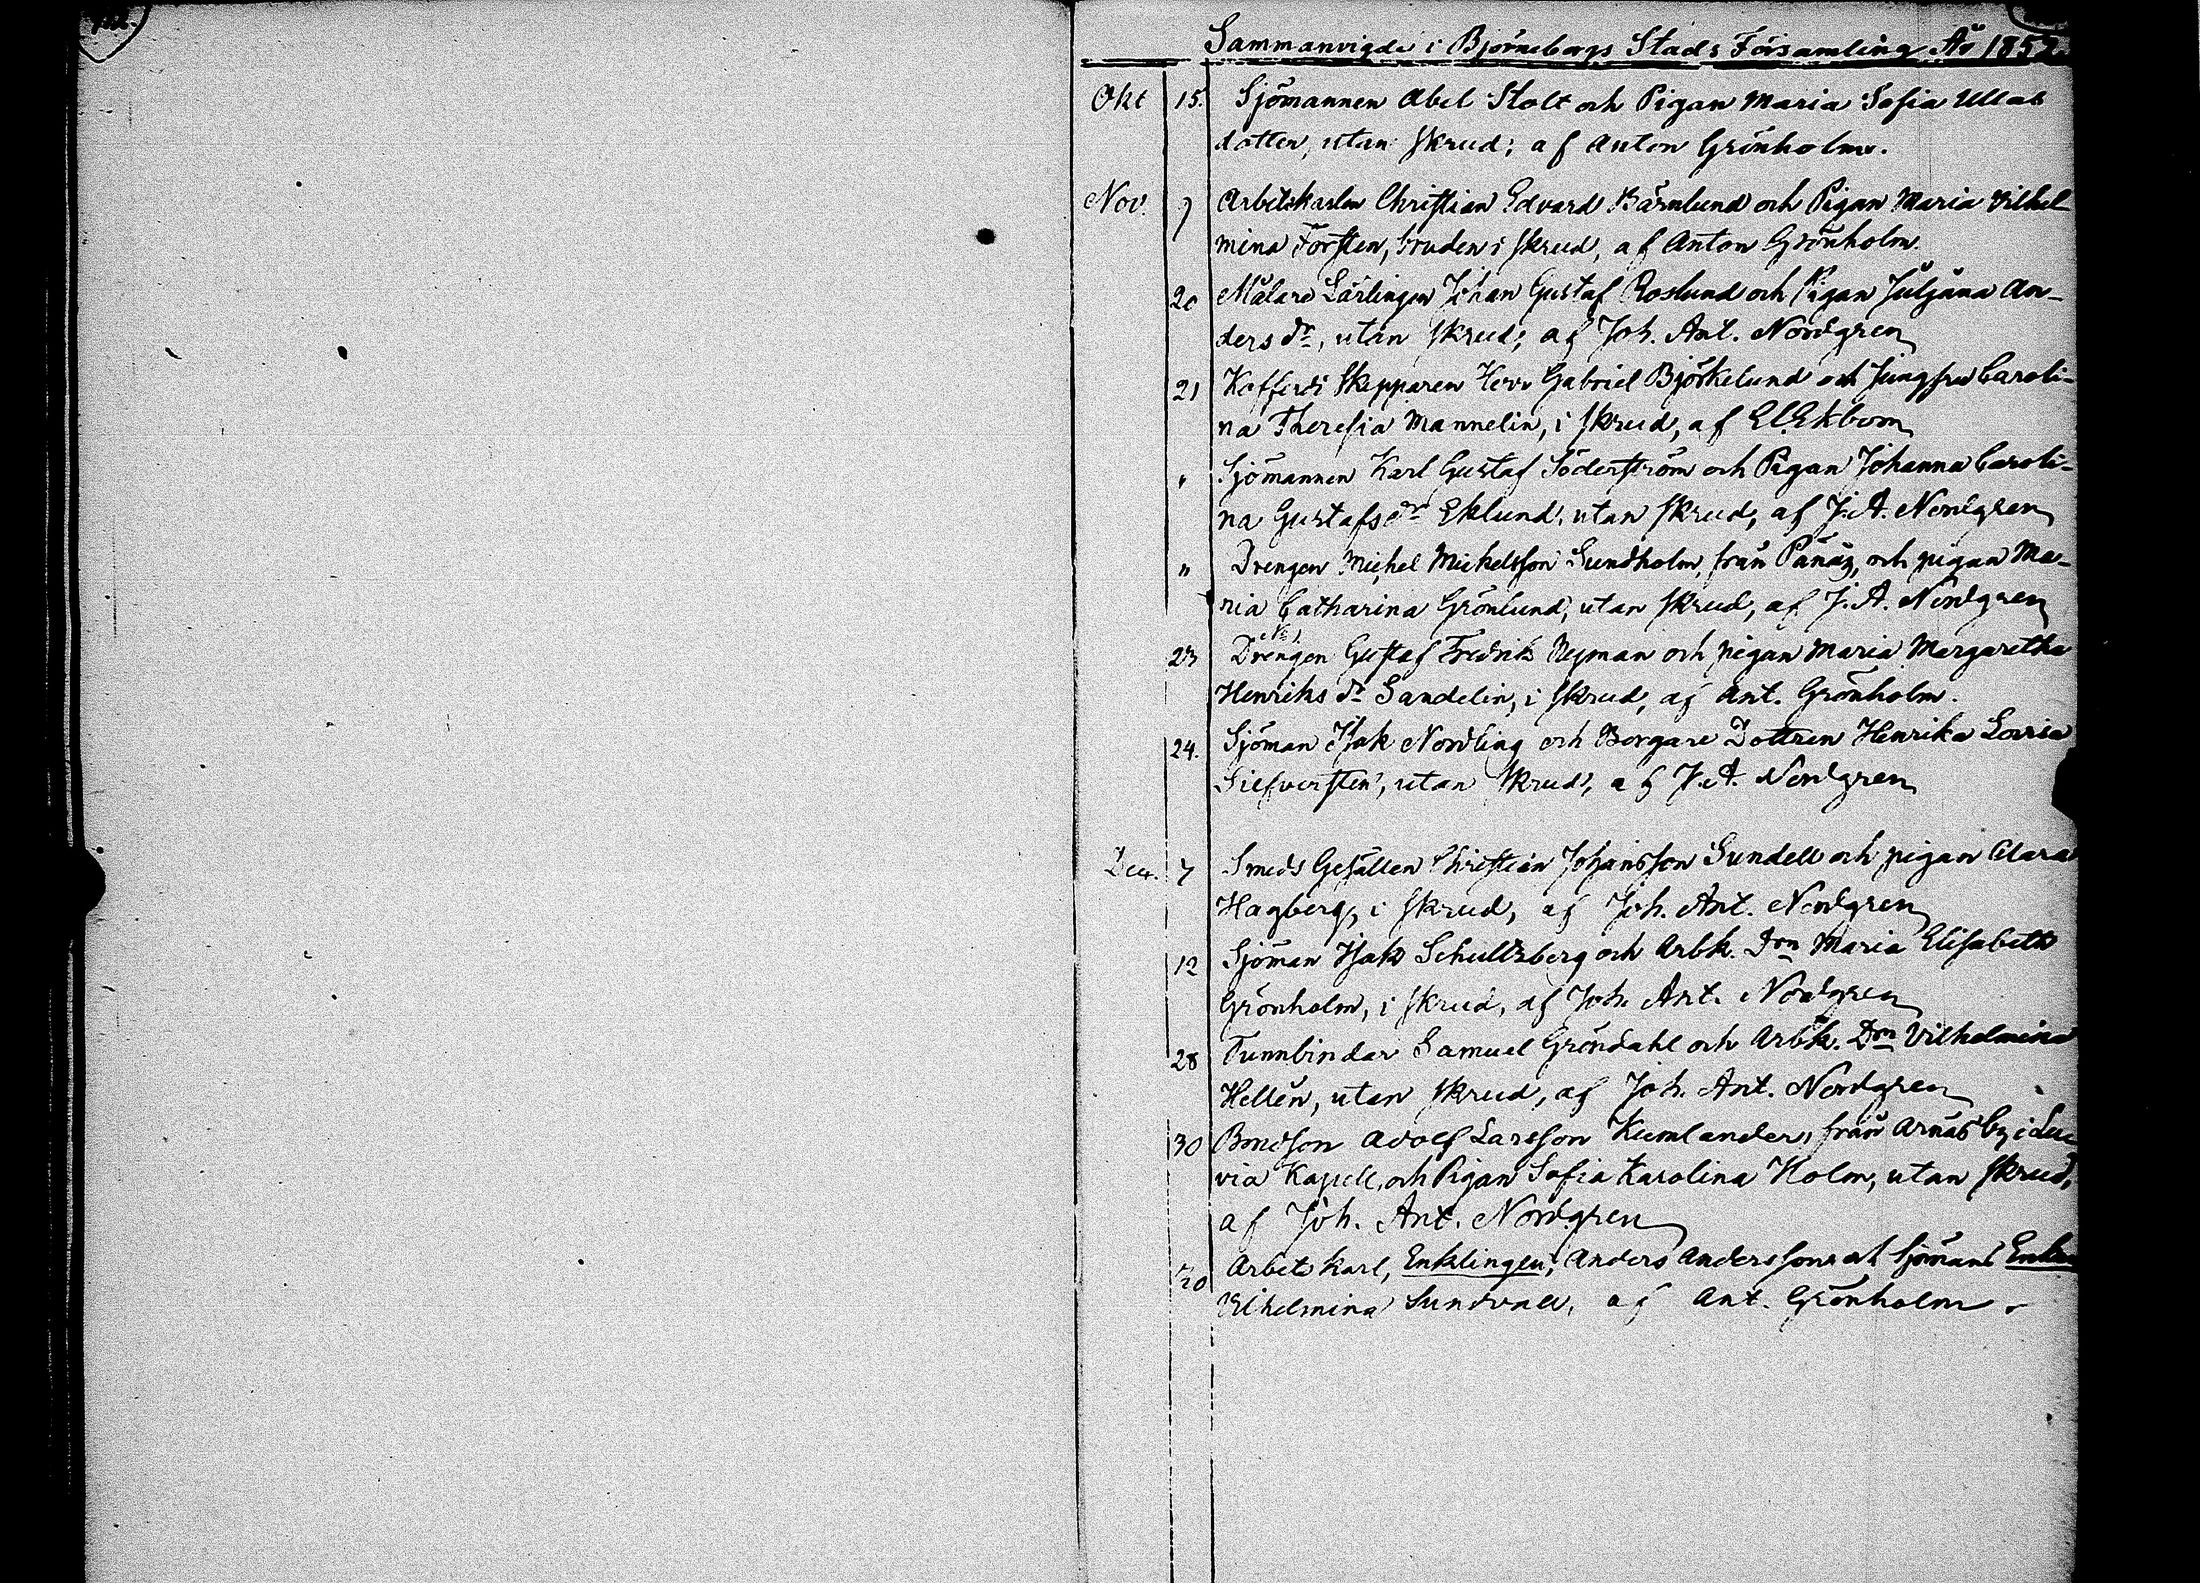 Sammanvigde i Björneborgs Stads Församling År 1852.
Okt 15. Sjömannen Abel Stolt och Pigan Maria Sofia Ullas
dotter, utan skrud; af Anton Grönholm.
Nov. 7 Arbetskarlen Christian Edvard Bärnlund och Pigan Maria Vilhel-
mina Forsten, bruden i skrud, af Anton Grönholm.
20 Målare Lärlingen Johan Gustaf Roslund och Pigan Juljana An-
ders dr, utan skrud; af Joh. Ant. Nordgren
21 Kofferdi Skepparen Herr Gabriel Björkelund och Jungfru Caroli-
na Theresia Mannelin, i skrud, af El. Ekbom
" Sjömannen Karl Gustaf Söderström och Pigan Johanna Caroli-
na Gustafs dr Eklund, utan skrud, af J. A. Nordgren
" Drengen Michel Mickelsson Sundholm, från och pigan Ma-
ria Catharina Grönlund, utan skrud, af J. A. Nordgren
23 Drengen Gustaf Fredrik Nyman och pigan Maria Margaretha
Henriks dr Sandelin, i skrud, af Ant. Grönholm.
24. Sjöman Isak Nordling och Borgare Dottren Henrika Lovisa
Siefversten, utan skrud, af J. A. Nordgren
Dec. 7 Smeds Gesällen Christian Johansson Sundell och pigan Clara
Hagberg, i skrud, af Joh. Ant. Nordgren
12 Sjöman Isak Schultzberg och Arbk. Drn Maria Elisabeth
Grönholm, i skrud, af Joh. Ant. Nordgren
28 Tunnbindar Samuel Gröndahl och Arbk. Drn Vilhelmina
Hellén, utan skrud, af Joh. Ant. Nordgren
30 Bondson Adolf Larsson Kumlander, från Arnäs by i
via Kapell, och Pigan Sofia Karolina Holm, utan skrud,
af Joh. Ant. Nordgren
30 Arbets karl, Enklingen, Anders Andersson och Sjömans Enkan
Vilhelmina Sundvall, af Ant. Grönholm.